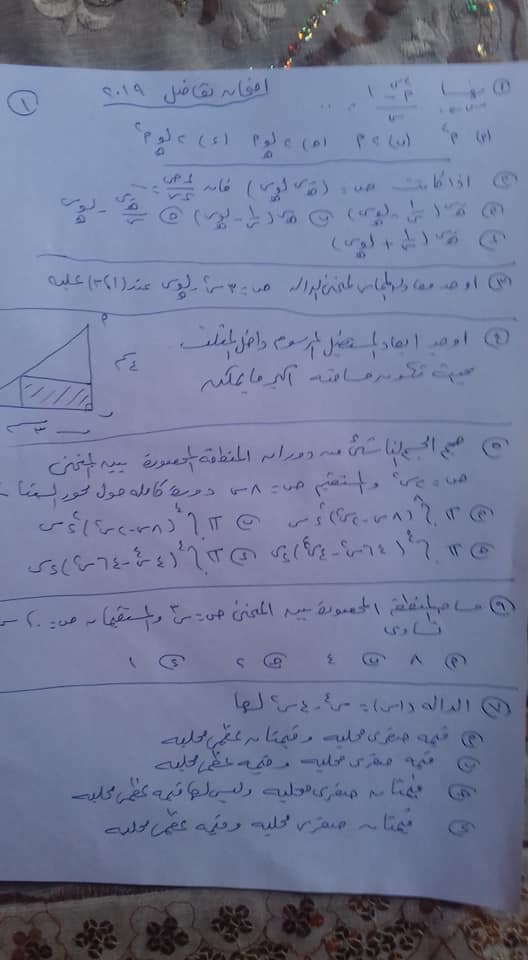 ١
امتحان تفاضل ٢٠١٩
١ نهـا
س←٠
(٢) اذا كانت ص = (هـ^س لو_هـ س) فان دص/دس =
(أ) هـ^س (١/س - لو_هـ س) (ب) هـ^س (١/س - لو_هـ س) (ج) هـ^س/س - لو_هـ س
(د) هـ^س (١/س + لو_هـ س)
(٣) اوجد معادلة المماس لمنحنى الدالة ص = ٣س - لو_هـ س عند (١، ٣) عليه
(٤) اوجد ابعاد المستطيل المرسوم داخل المثلث
بحيث تكون مساحته أكبر ما يمكن
٤سم
٣سم
(٥) حجم الجسم الناشئ من دوران المنطقة المحصورة بين المنحنى
ص = ٢س٢ والمستقيم ص = ٨س دورة كاملة حول محور السينات
(٦) مساحة المنطقة المحصورة بين المنحنى ص = س٣ والمستقيمات ص = ٠، ٢ س
تساوى
(أ) ٨ (ب) ٤ (ج) ٢ (د) ١
(٧) الدالة د(س) = س٤ - ٤س٢ لها
(أ) قيمة صغرى محلية وقيمتان عظمى محلية
(ب) قيمة صغرى محلية وقيمة عظمى محلية
(ج) قيمتان صغرى محلية وليس لها قيمة عظمى محلية
(د) قيمتان صغرى محلية وقيمة عظمى محلية